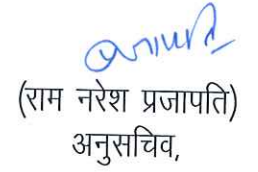 (राम नरेश प्रजापति)
अनुसचिव,